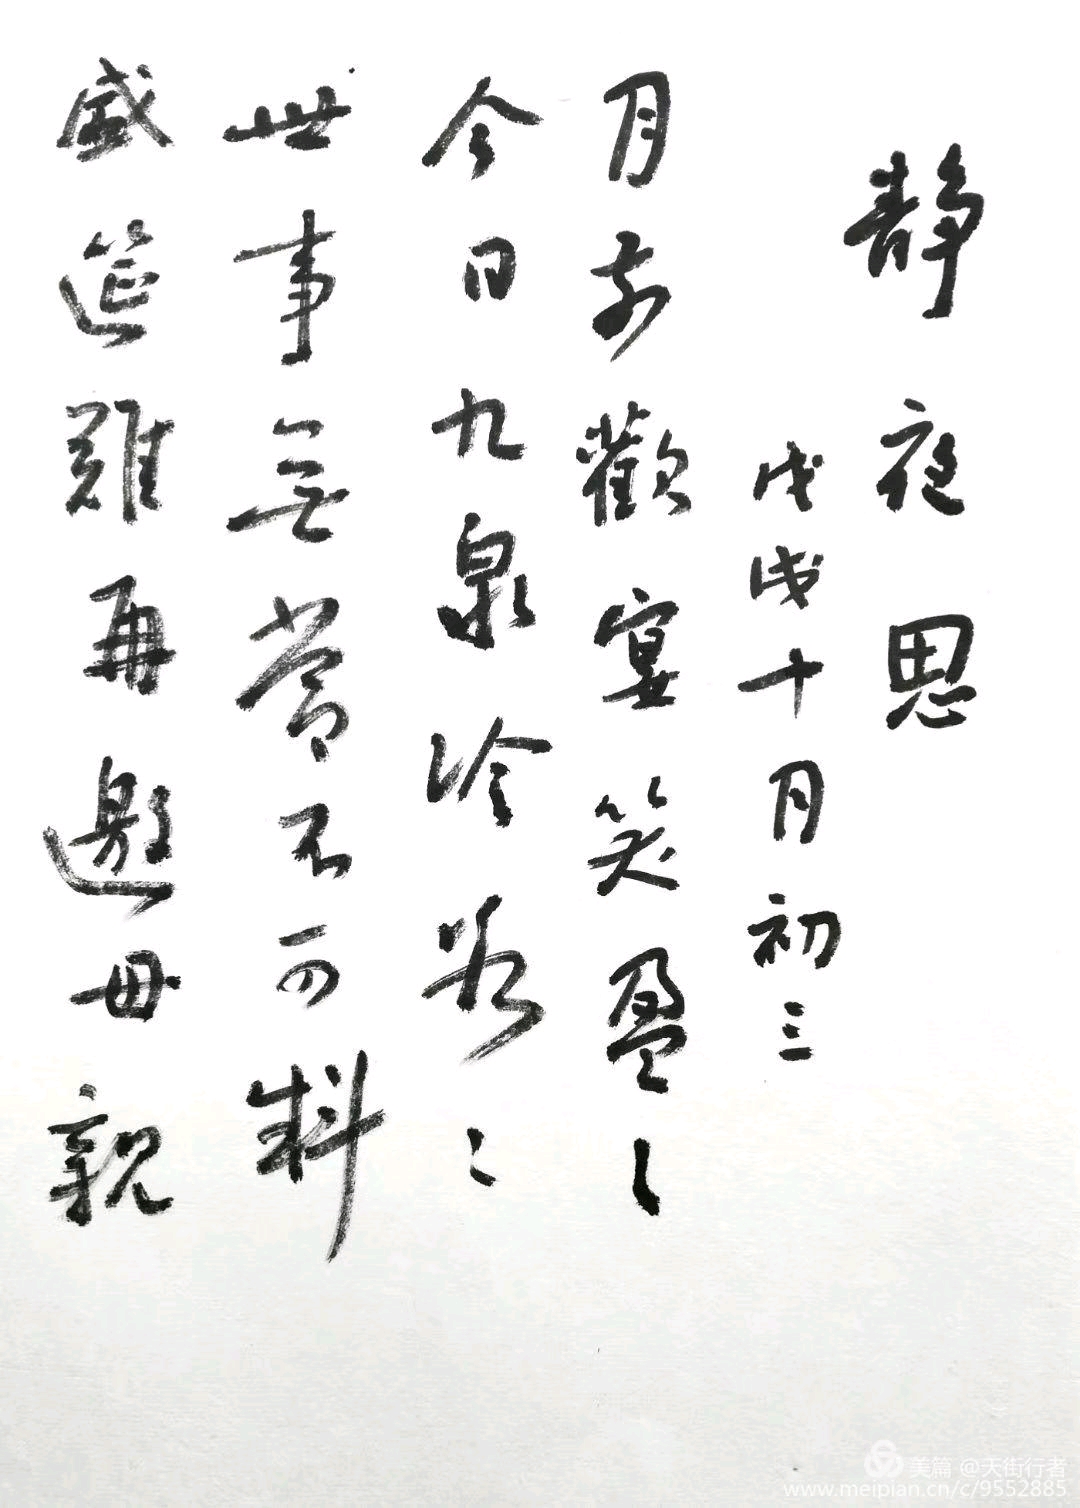 静夜思
戊戌十月初三
月前歡宴笑盈〻
今日九泉冷〻
世事無常不可料
盛筵難再邀母親
美篇 @天街行者
www.meipian.cn/c/9552885